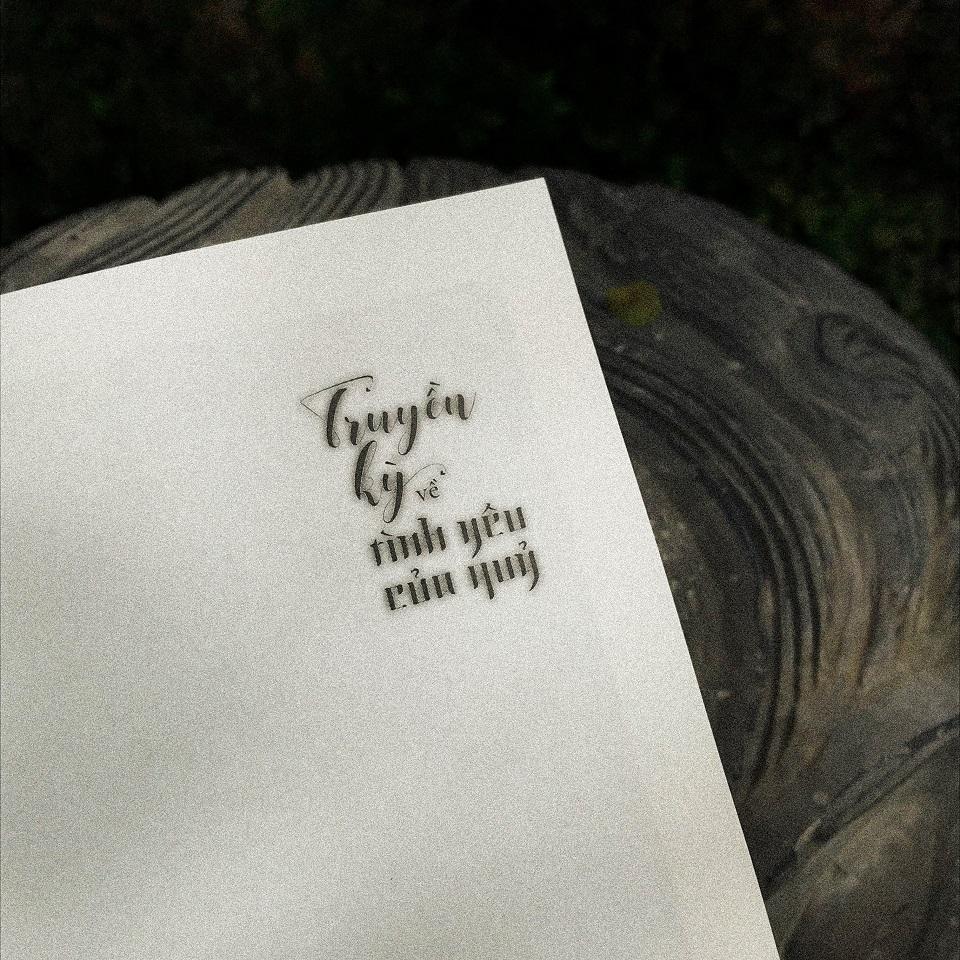 Truyền
kỳ về
tình yêu
của quỷ